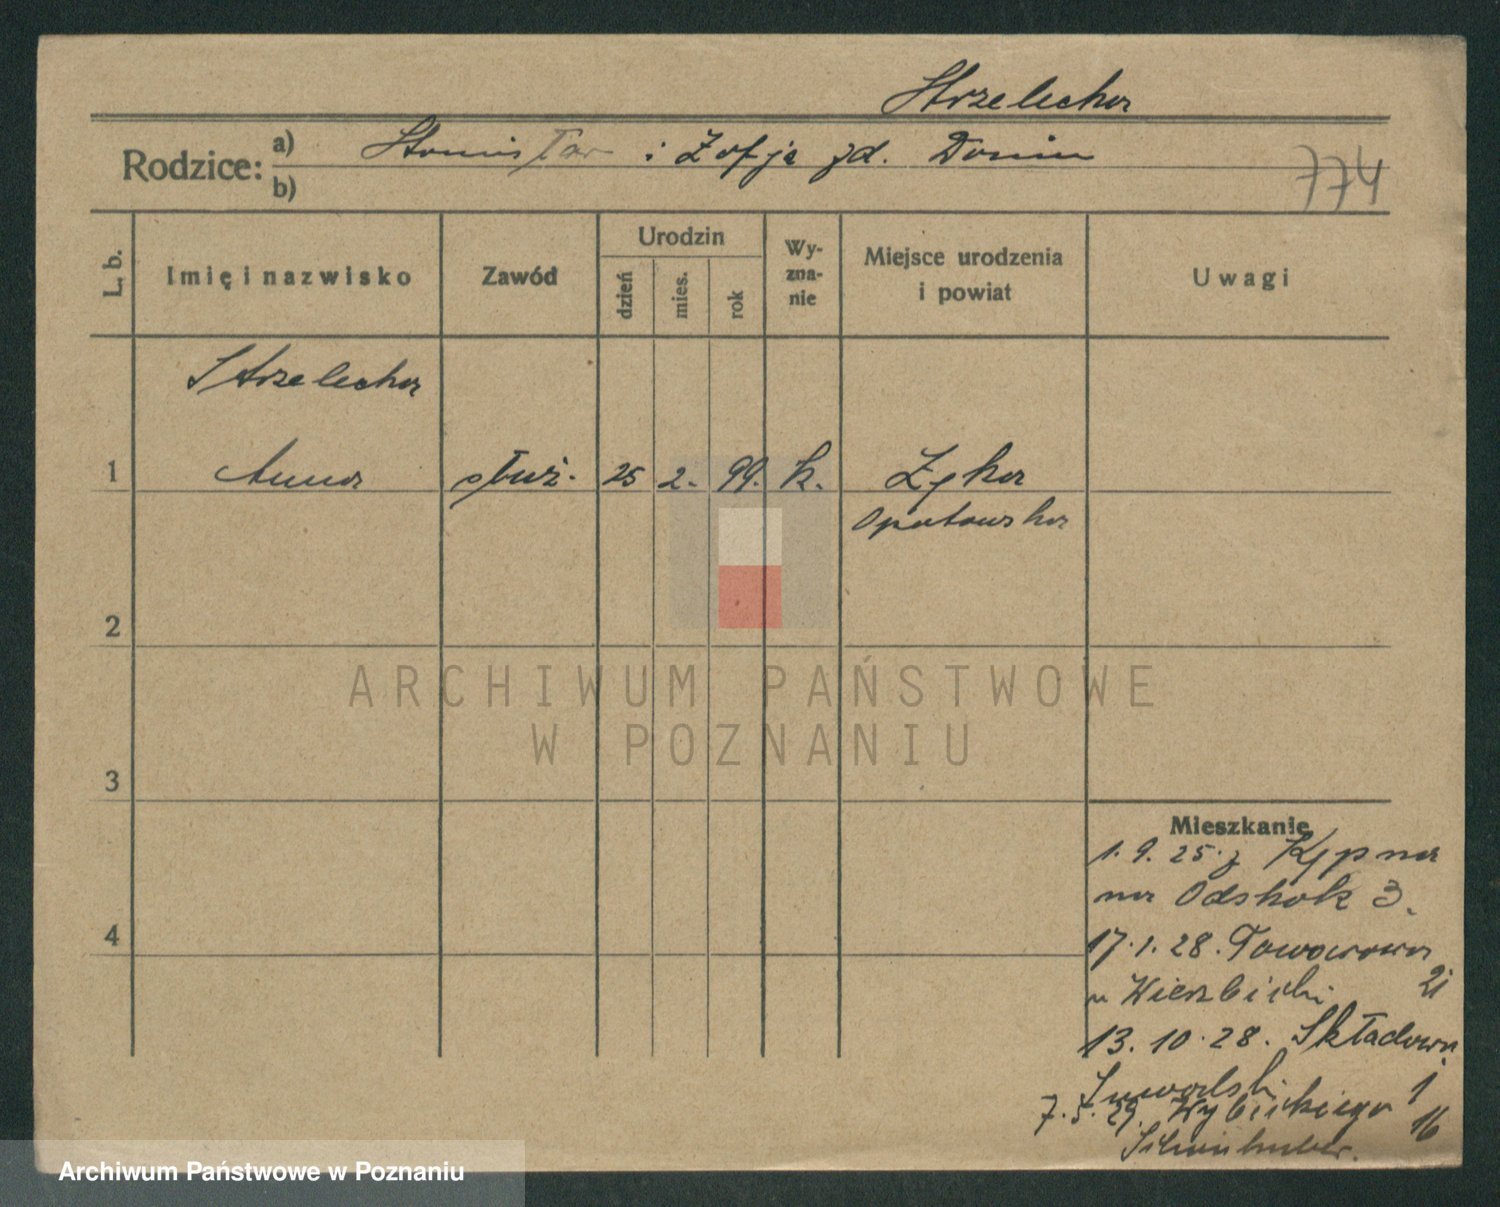 Strzelecka
Rodzice: a) Stanisław i Zofja zd. Donin
b)
774
L. b.
Imię i nazwisko
Zawód
Urodzin
dzień
mies.
rok
Wy-
zna-
nie
Miejsce urodzenia
i powiat
Uwagi
Strzelecka
1 Anna służ. 25 2. 99. k. Łęka
Opatowska
2
3
4
ARCHIWUM PAŃSTWOWE
W POZNANIU
Mieszkanie
1. 9. 25. z Kępna
na Odskok 3.
17. 1. 28. Towarowa
u Wierzbicki 21
13. 10. 28. Składowa
1
7. 5. 29. Wybickiego 16
Archiwum Państwowe w Poznaniu